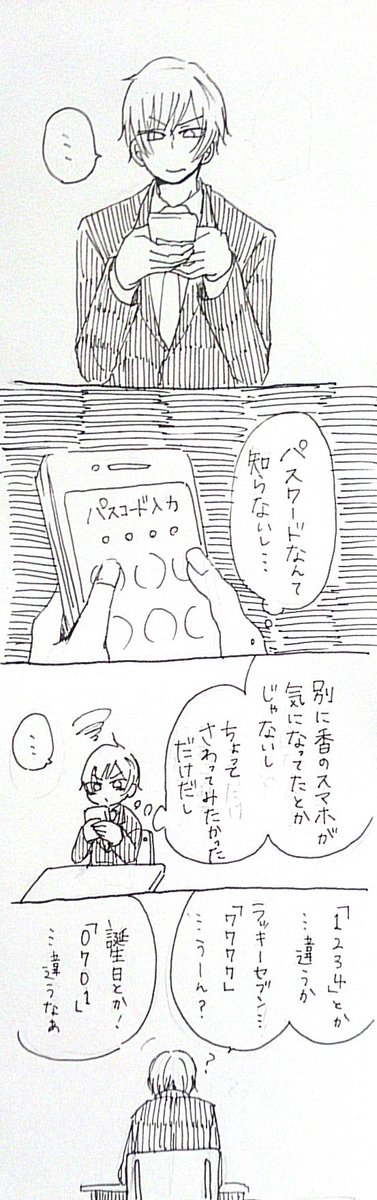 …
パスワードなんて
知らないし…
パスコード入力
別に香のスマホが
気になってたとか
じゃないし
ちょって
さわってみたかった
だけだし
…
「1234」とか
…違うか
ラッキーセブン…
「7777」
…うーん?
誕生日とか!
「0701」
…違うなぁ
?